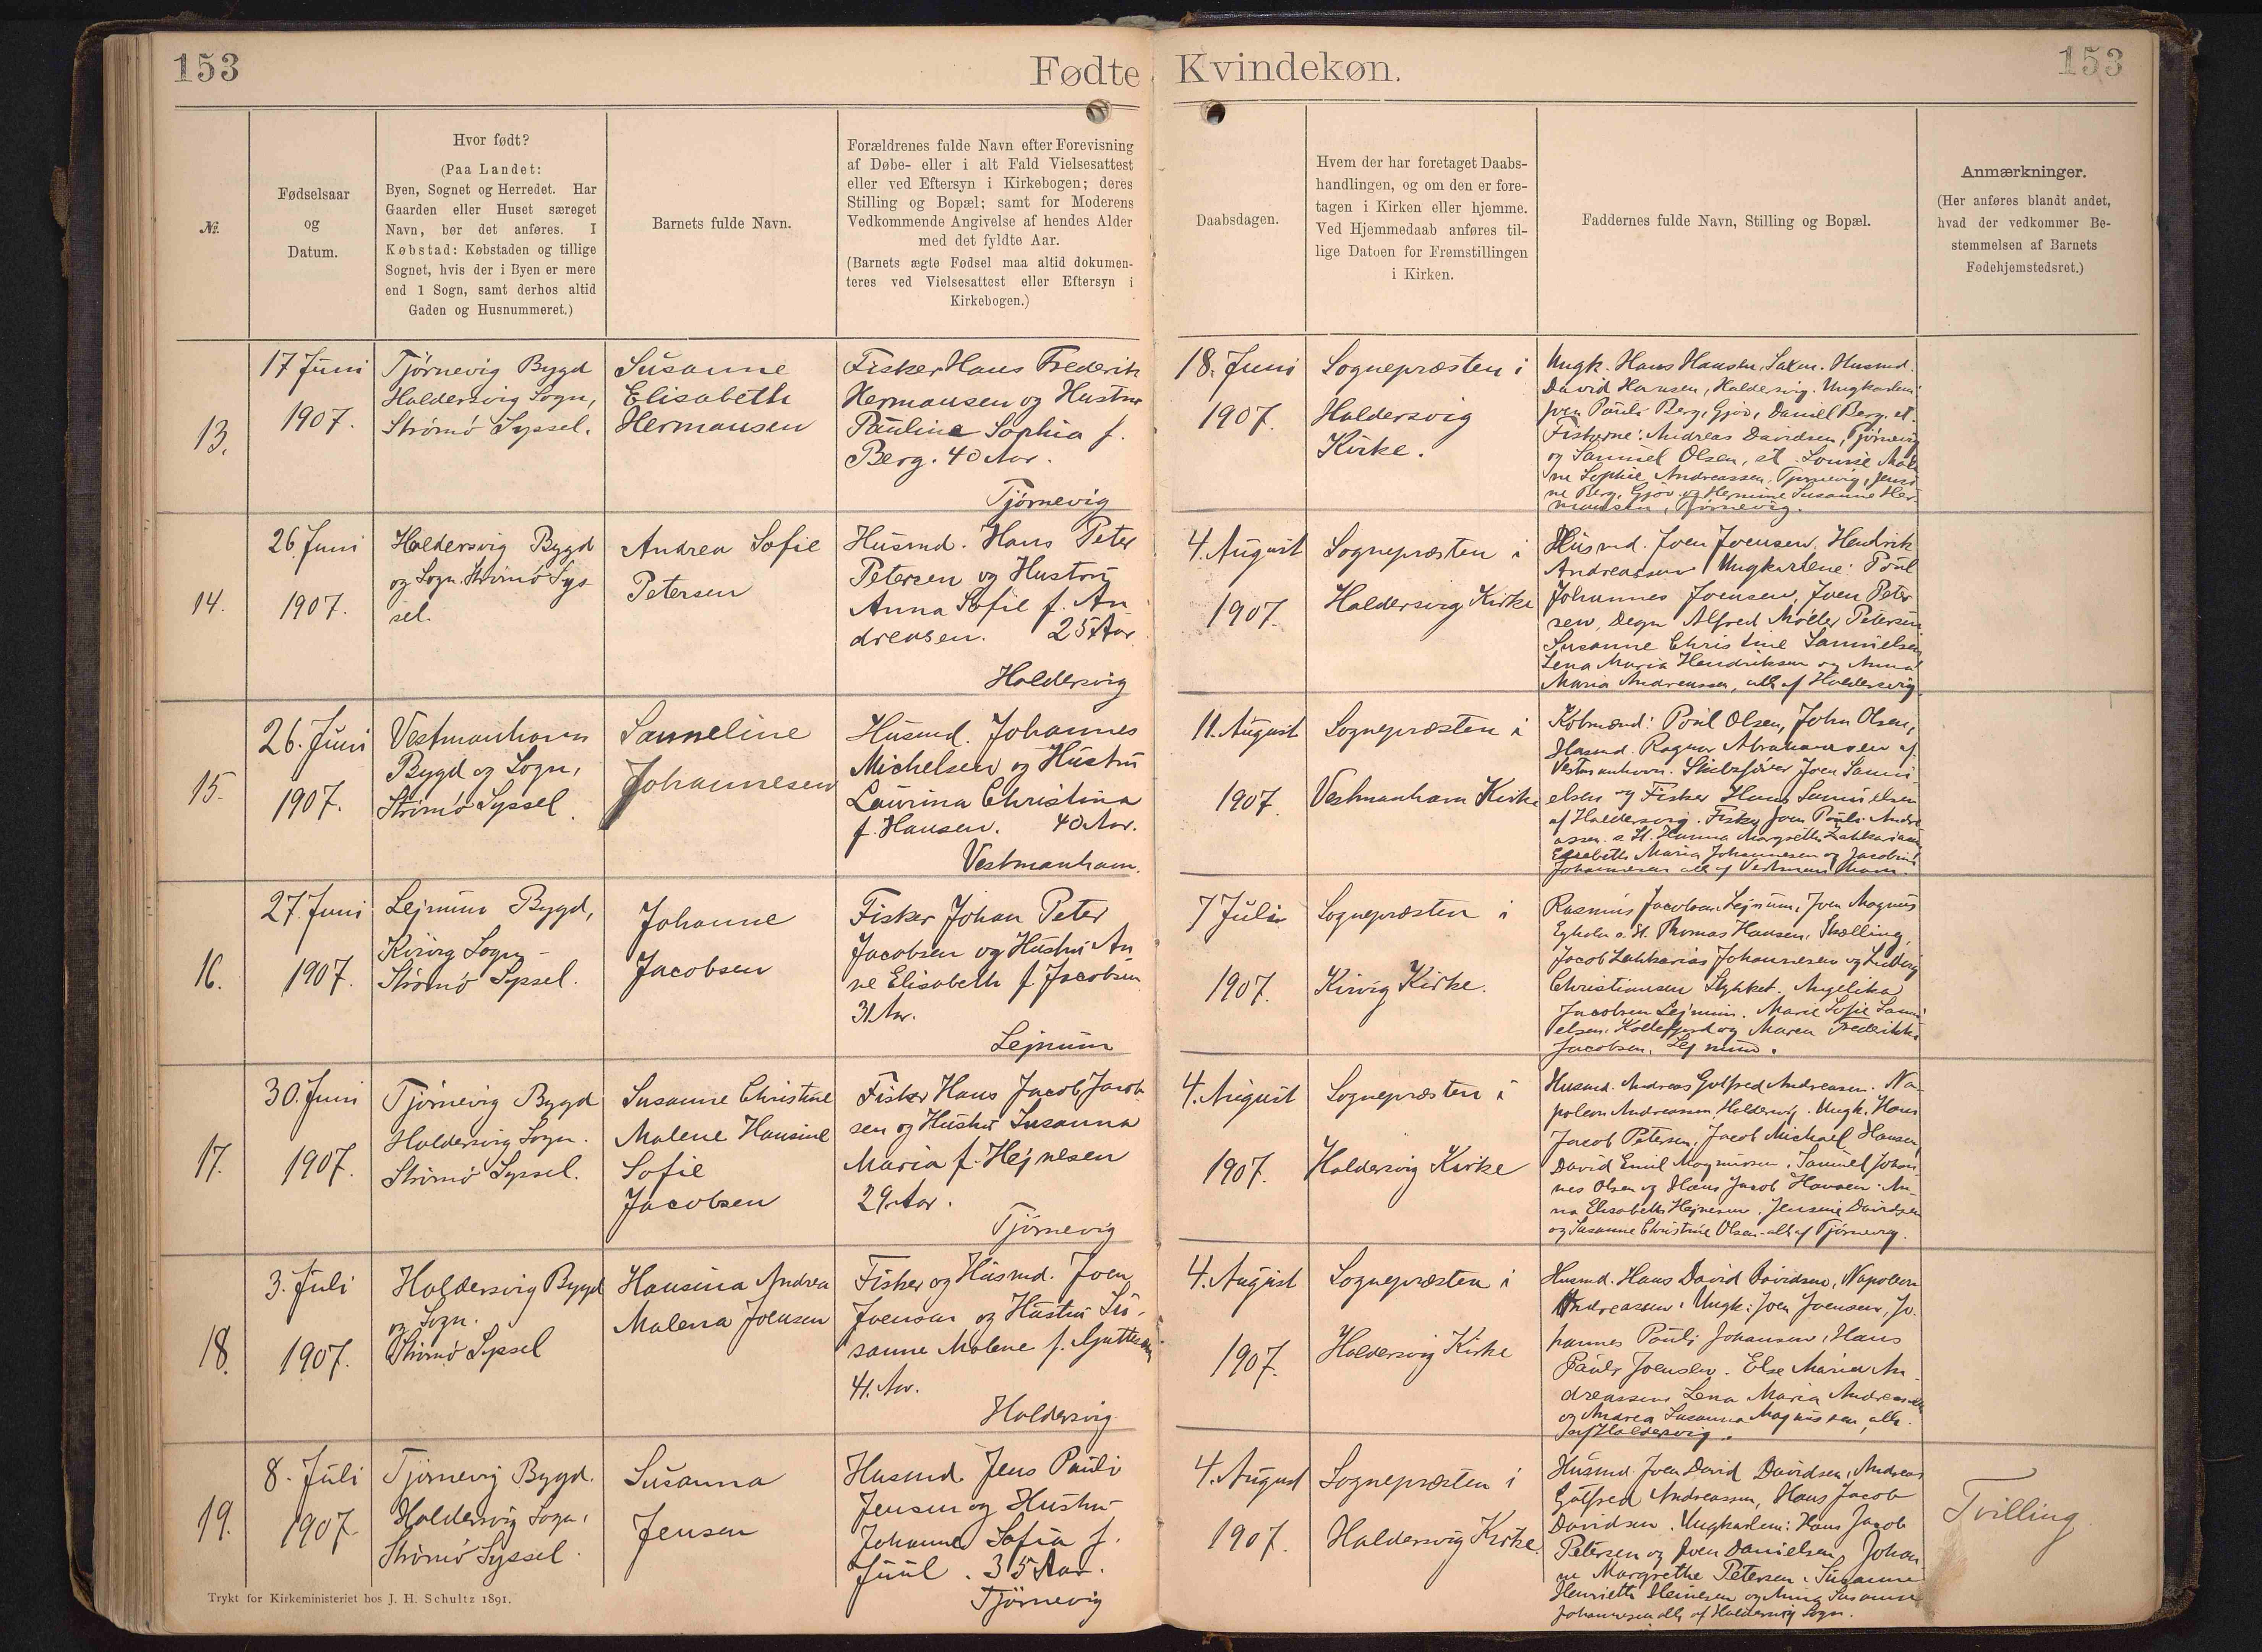 153
Fødte
Kvindekøn.
153
№
Fødselsaar
og
Datum.
Hvor født?
(Paa Landet:
Byen, Sognet og Herredet. Har
Gaarden eller Huset særeget
Navn, bør det anføres. I
Købstad: Købstaden og tillige
Sognet, hvis der i Byen er mere
end 1 Sogn, samt derhos altid
Gaden og Husnummeret.)
Barnets fulde Navn.
Forældrenes fulde Navn efter Forevisning
af Døbe- eller i alt Fald Vielsesattest
eller ved Eftersyn i Kirkebogen; deres
Stilling og Bopæl; samt for Moderens
Vedkommende Angivelse af hendes Alder
med det fyldte Aar.
(Barnets ægte Fødsel maa altid dokumen-
teres ved Vielsesattest eller Eftersyn i
Kirkebogen.)
Daabsdagen.
Hvem der har foretaget Daabs-
handlingen, og om den er fore-
tagen i Kirken eller hjemme.
Ved Hjemmedaab anføres til-
lige Datoen for Fremstillingen
i Kirken.
Faddernes fulde Navn, Stilling og Bopæl.
Anmærkninger.
(Her anføres blandt andet,
hvad der vedkommer Be-
stemmelsen af Barnets
Fødehjemstedsret.)
13.
17 Juni
1907.
Tjørnevig Bygd
Haldersvig Sogn,
Strømø Syssel.
Susanne
Elisabeth
Hermansen
Fisker Hans Frederik
Hermansen og Hustru
Pauline Sophia f.
Berg. 40 Aar.
Tjørnevig
18. Juni
1907.
Sognepræsten i
Haldersvig
Kirke.
Ungk. Hans Hansen, Saxen. Husmd.
David Hansen, Haldersvig. Ungkarlene
Joen Pauli Berg, Gjov, Daniell Berg. st
Fiskerne: Andreas Davidsen, Tjørnevig
og Samuel Olsen, st. Louise Male
ne Sophie Andreassen, Tjørnevig, Jensi
ne Berg, Gjov og Hermine Susanne Her
mansen, Tjørnevig.
14.
26 Juni
1907.
Haldersvig Bygd
og Sogn. Strømø Sys
sel.
Andrea Sofie
Petersen
Husmd. Hans Peter
Petersen og Hustru
Anna Sofie f. An
dreasen. 25 Aar
Haldersvig
4. August
1907.
Sognepræsten i
Haldersvig Kirke
Husmd. Joen Joensen, Hendrik
Andreassen Ungkarlene: Poul
Johannes Joensen, Joen Peter
sen, Degn Alfred Møller Petersen
Susanne Christine Samuelsen
Lena Maria Hendriksen og Anna
Maria Andreassen, alle af Haldersvig.
15.
26. Juni
1907.
Vestmanhavns
Bygd og Sogn,
Strømø Syssel.
Sanneline
Johannesen
Husmd. Johannes
Michelsen og Hustru
Laurina Christina
f. Hansen. 40 Aar.
Vestmanhavn.
11. August
1907
Sognepræsten i
Vestmanhavn Kirke
Købmænd: Poul Olsen, John Olsen,
Husmd. Ragnar Abrahamsen af
Vestmanhavn. Skibsfører Joen Samu
elsen og Fisker Hans Samuelsen
af Haldersvig. Fisker Joen Pauli Andre
assen. s. St. Hanna Margrethe Zakkariasen
Elsebeth Maria Johannesen og Jacobine
Johannesen alle af Vestmanhavn.
16.
27. Juni
1907.
Lejnum Bygd,
Kvivig Sogn -
Strømø Syssel.
Johanne
Jacobsen
Fisker Johan Peter
Jacobsen og Hustru An
ne Elisabeth f. Jacobsen
31 Aar.
Lejnum
7 Juli
1907.
Sognepræsten i
Kvivig Kirke.
Rasmus Jacobsen Lejnum, Joen Magnus
Egholm s. St. Thomas Hansen, Skælling,
Jacob Zakkarias Johannesen og Ludvig
Christiansen Stykket. Angelika
Jacobsen Lejnum. Maria Sofie Samu
elsen. Kollefjord og Maren Frederikke
Jacobsen. Lejnum.
17.
30. Juni
1907.
Tjørnevig Bygd
Haldersvig Sogn.
Strømø Syssel.
Susanne Christine
Malene Hansine
Sofie
Jacobsen
Fisker Hans Jacob Jacob
sen og Hustru Susanna
Maria f. Hejnesen
29 Aar.
Tjørnevig
4. August
1907.
Sognepræsten i
Haldersvig Kirke
Husmd. Andreas Gotfred Andreasen. Na-
poleon Andreassen Haldersvig. Ungk. Hans
Jacob Petersen, Jacob Michael Hansen
David Emil Magnussen, Samuel Johan
nes Olsen og Hans Jacob Hansen. An-
na Elisabeth Hejnesen. Jensine Davidsen
og Susanne Christine Olsen - alle af Tjørnevig.
18.
3. Juli
1907.
Haldersvig Bygd
og Sogn.
Strømø Syssel
Hansina Andrea
Malena Joensen
Fisker og Husmd. Joen
Joensen og Hustru Su-
sanne Malene f. Guttesen
41. Aar.
Haldersvig
4. August
1907.
Sognepræsten i
Haldersvig Kirke
Husmd. Hans David Davidsen, Napoleon
Andreassen. Ungk: Joen Joensen, Jo.
hannes Pauli Johansen, Hans
Pauli Joensen. Else Maria An-
dreassen Lena Maria Andreassen
og Andrea Susanna Magnussen, alle
af Haldersvig.
19.
8. Juli
1907.
Tjørnevig Bygd.
Haldersvig Sogn,
Strømø Syssel.
Susanna
Jensen
Husmd. Jens Pauli
Jensen og Hustru
Johanne Sofia f.
Juul. 35 Aar.
Tjørnevig
4. August
1907.
Sognepræsten i
Haldersvig Kirke.
Husmd. Joen David Davidsen, Andreas
Gotfred Andreassen, Hans Jacob
Davidsen. Ungkarlene: Hans Jacob
Petersen og Joen Danielsen, Johan
ne Margrethe Petersen. Susanne
Henriette Heinesen og Anna Susanne
Johannesen alle af Haldersvig Sogn.
Tvilling.
Trykt for Kirkeministeriet hos J. H. Schultz 1891.